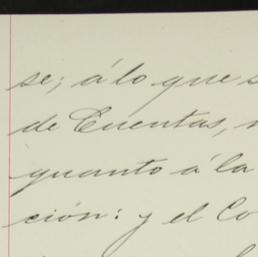 se; á lo que s
de Cuentas,
quanto á la
ción: y el Co